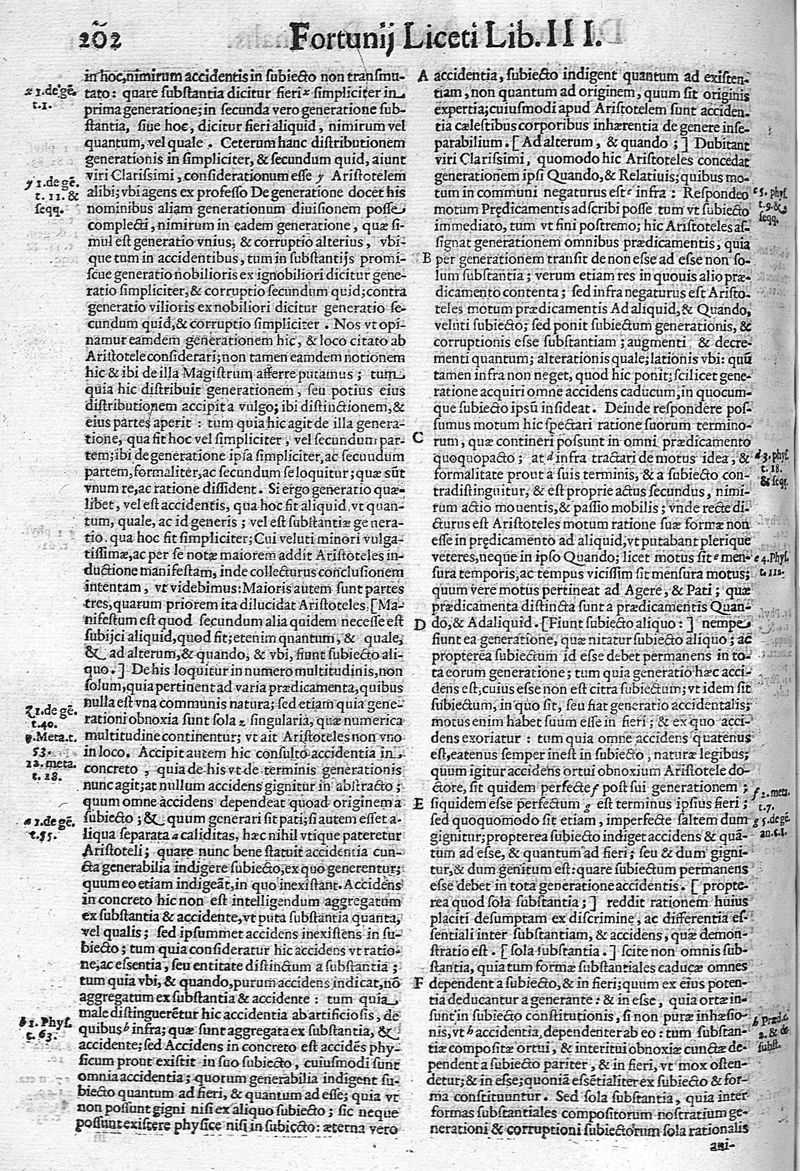 202 Fortunij Liceti Lib. III.
in hoc, nimirum accidentis in subiecto non transmu-
tato: quare substantia dicitur fieri x simpliciter in
prima generatione; in secunda vero generatione sub-
stantia, siue hoc, dicitur fieri aliquid, nimirum vel
quantum, vel quale. Ceterum hanc distributionem
generationis in simpliciter, & secundum quid, aiunt
viri Clarissimi, considerationum esse y Aristotelem
alibi; vbi agens ex professo De generatione docet his
nominibus aliam generationum diuisionem posse
complecti, nimirum in eadem generatione, quæ si-
mul est generatio vnius, & corruptio alterius, vbi-
que tum in accidentibus, tum in substantijs promi-
scue generatio nobilioris ex ignobiliori dicitur gene-
ratio simpliciter, & corruptio secundum quid; contra
generatio vilioris ex nobiliori dicitur generatio se-
cundum quid, & corruptio simpliciter. Nos vt opi-
namur eamdem generationem hic, & loco citato ab
Aristotele considerari; non tamen eamdem notionem
hic & ibi de illa Magistrum afferre putamus; tum
quia hic distribuit generationem, seu potius eius
distributionem accipit a vulgo; ibi distinctionem, &
eius partes aperit: tum quia hic agit de illa genera-
tione, qua fit hoc vel simpliciter, vel secundum par-
tem; ibi de generatione ipsa simpliciter, ac secundum
partem, formaliter, ac secundum se loquitur; quæ sūt
vnum re, ac ratione dissident. Si ergo generatio quæ-
libet, vel est accidentis, qua hoc fit aliquid, vt quan-
tum, quale, ac id generis; vel est substantiæ genera-
tio, qua hoc fit simpliciter; Cui veluti minori vulga-
tissimæ, ac per se notæ maiorem addit Aristoteles in-
ductione manifestam, inde collecturus conclusionem
intentam, vt videbimus: Maioris autem sunt partes
tres, quarum priorem ita dilucidat Aristoteles. [Ma-
nifestum est quod secundum alia quidem necesse est
subijci aliquid, quod fit; etenim quantum, & quale,
& ad alterum, & quando, & vbi, fiunt subiecto ali-
quo.] De his loquitur in numero multitudinis, non
solum, quia pertinent ad varia prædicamenta, quibus
nulla est vna communis natura; sed etiam quia gene-
rationi obnoxia sunt sola z singularia, quæ numerica
multitudine continentur; vt ait Aristoteles non vno
in loco. Accipit autem hic consulto accidentia in
concreto, quia de his vt de terminis generationis
nunc agit; at nullum accidens gignitur in abstracto;
quum omne accidens dependeat quoad originem a
subiecto; & quum generari sit pati; si autem esset a-
liqua separata a caliditas, hæc nihil vtique pateretur
Aristoteli; quare nunc bene statuit accidentia cun-
cta generabilia indigere subiecto, ex quo generentur;
quum eo etiam indigeāt, in quo inexistant. Accidens
in concreto hic non est intelligendum aggregatum
ex substantia & accidente, vt puta substantia quanta,
vel qualis; sed ipsummet accidens inexistens in su-
biecto; tum quia consideratur hic accidens vt ratio-
ne, ac essentia, seu entitate distinctum a substantia;
tum quia vbi, & quando, purum accidens indicat, nō
aggregatum ex substantia & accidente: tum quia
male distingueretur hic accidentia ab artificiosis, de
quibus b infra; quæ sunt aggregata ex substantia, &
accidente; sed Accidens in concreto est accidēs phy-
sicum prout existit in suo subiecto, cuiusmodi sunt
omnia accidentia; quorum generabilia indigent su-
biecto quantum ad fieri, & quantum ad esse; quia vt
non possunt gigni nisi ex aliquo subiecto; sic neque
possunt existere physice nisi in subiecto: æterna vero
x 1. de gē.
t. 1.
y 1. de gē.
t. 11. &
seqq.
z 1. de gē.
t. 40.
9. Meta. t.
53.
12. meta.
t. 28.
a 1. de gē.
t. 55.
b 1. Phys.
t. 63.
A accidentia, subiecto indigent quantum ad existen-
tiam, non quantum ad originem, quum sit originis
expertia; cuiusmodi apud Aristotelem sunt acciden-
tia cælestibus corporibus inhærentia de genere inse-
parabilium. [Ad alterum, & quando;] Dubitant
viri Clarissimi, quomodo hic Aristoteles concedat
generationem ipsi Quando, & Relatiuis; quibus mo-
tum in communi negaturus est c infra: Respondeo
motum Prędicamentis adscribi posse tum vt subiecto
immediato, tum vt fini postremo; hic Aristoteles as-
signat generationem omnibus prædicamentis, quia
B per generationem transit de non esse ad esse non so-
lum substantia; verum etiam res in quouis alio præ-
dicamento contenta; sed infra negaturus est Aristo-
teles motum prædicamentis Ad aliquid, & Quando,
veluti subiecto; sed ponit subiectum generationis, &
corruptionis esse substantiam; augmenti & decre-
menti quantum; alterationis quale; lationis vbi: quū
tamen infra non neget, quod hic ponit; scilicet gene-
ratione acquiri omne accidens caducum, in quocum-
que subiecto ipsū insideat. Deinde respondere pos-
sumus motum hic spectari ratione suorum termino-
C rum, quæ contineri possunt in omni prædicamento
quoquopacto; at d infra tractari de motus idea, &
formalitate prout a suis terminis, & a subiecto con-
tradistinguitur, & est proprie actus secundus, nimi-
rum actio mouentis, & passio mobilis; vnde recte di-
cturus est Aristoteles motum ratione suæ formæ non
esse in prędicamento ad aliquid, vt putabant plerique
veteres, neque in ipso Quando; licet motus sit e men-
sura temporis, ac tempus vicissim sit mensura motus;
quum vere motus pertineat ad Agere, & Pati; quæ
prædicamenta distincta sunt a prædicamentis Quan-
D do, & Ad aliquid. [Fiunt subiecto aliquo:] nempe
fiunt ea generatione, quæ nitatur subiecto aliquo; ac
propterea subiectum id esse debet permanens in to-
ta eorum generatione; tum quia generatio hæc acci-
dens est, cuius esse non est citra subiectum; vt idem sit
subiectum, in quo sit, seu fiat generatio accidentalis;
motus enim habet suum esse in fieri; & ex quo acci-
dens exoriatur: tum quia omne accidens quatenus
est, eatenus semper inest in subiecto, naturæ legibus;
quum igitur accidens ortui obnoxium Aristotele do-
ctore, sit quidem perfecte f post sui generationem;
E siquidem esse perfectum g est terminus ipsius fieri;
sed quoquomodo sit etiam, imperfecte saltem dum
gignitur; propterea subiecto indiget accidens & quā-
tum ad esse, & quantum ad fieri; seu & dum gigni-
tur, & dum genitum est: quare subiectum permanens
esse debet in tota generatione accidentis. [propte-
rea quod sola substantia;] reddit rationem huius
placiti desumptam ex discrimine, ac differentia es-
sentiali inter substantiam, & accidens, quæ demon-
stratio est. [sola substantia.] scite non omnis sub-
stantia, quia tum formæ substantiales caducæ omnes
F dependent a subiecto, & in fieri; quum ex eius poten-
tia deducantur a generante: & in esse, quia ortæ in-
sunt in subiecto constitutionis, si non puræ inhæsio-
nis, vt h accidentia, dependenter ab eo: tum substan-
tiæ compositæ ortui, & interitui obnoxiæ cunctæ de-
pendent a subiecto pariter, & in fieri, vt mox osten-
detur; & in esse; quoniā essētialiter ex subiecto & for-
ma constituuntur. Sed sola substantia, quia inter
formas substantiales compositorum nostratium ge-
nerationi & corruptioni subiectorum sola rationalis
ani-
c 5. phys.
t. 9. &
seqq.
d 3. phys.
t. 18.
& seqq.
e 4. Phys.
t. 112.
f 2. meta.
t. 7.
g 5. de gē
an. c. 1.
h Præd. c.
2. & de
subst.